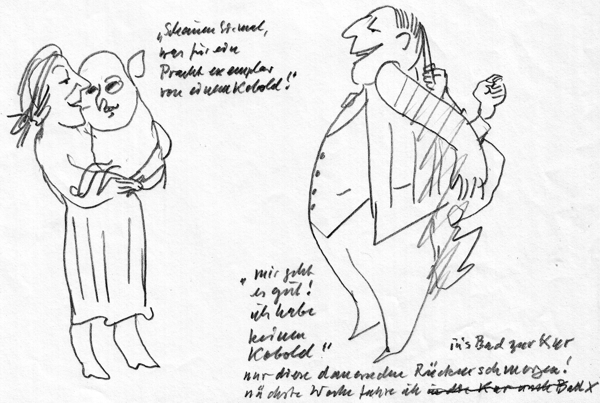 „Schauen Sie mal,
was für ein
Prachtexemplar
von einem Kobold!"
„mir geht
es gut!
ich habe
keinen
Kobold!"
ins Bad zur Kur
nur diese dauernden Rückenschmerzen!
nächste Woche fahre ich in die Kur nach Bad X